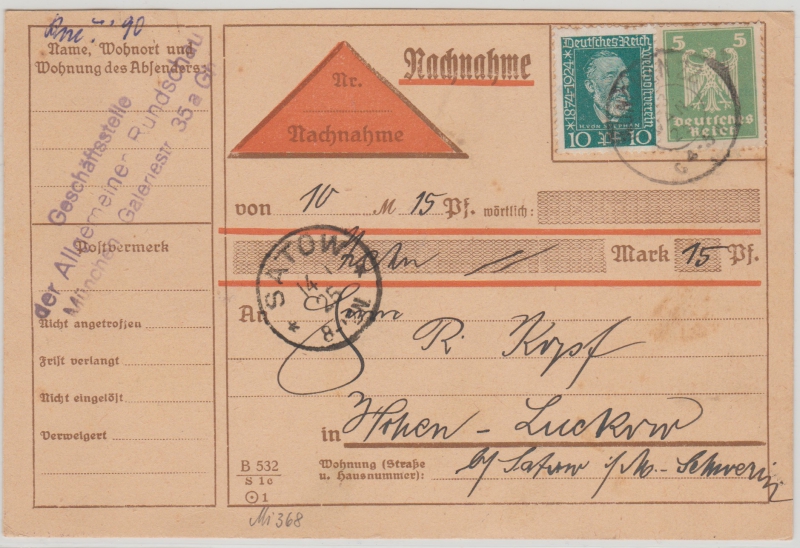 Name, Wohnort und
Wohnung des Absenders:
Geschäftsstelle
der Allgemeinen Rundschau
München Galeriestr. 35 a Gh
Postvermerk
Nicht angetroffen
Frist verlangt
Nicht eingelöst
Verweigert
Nr.
Nachnahme
Nachnahme
Deutsches Reich
1874-1924
Weltpostverein
H. VON STEPHAN
10 10
5 5
Deutsches
Reich
von 10 M 15 Pf. wörtlich:
zehn Mark 15 Pf.
SATOW
14 1
25
An Herrn
R. Kopf
in Hohen-Luckow
Wohnung (Straße
u. Hausnummer): b/ Satow i/M.-Schwerin
B 532
S 1c
1
Mi 368